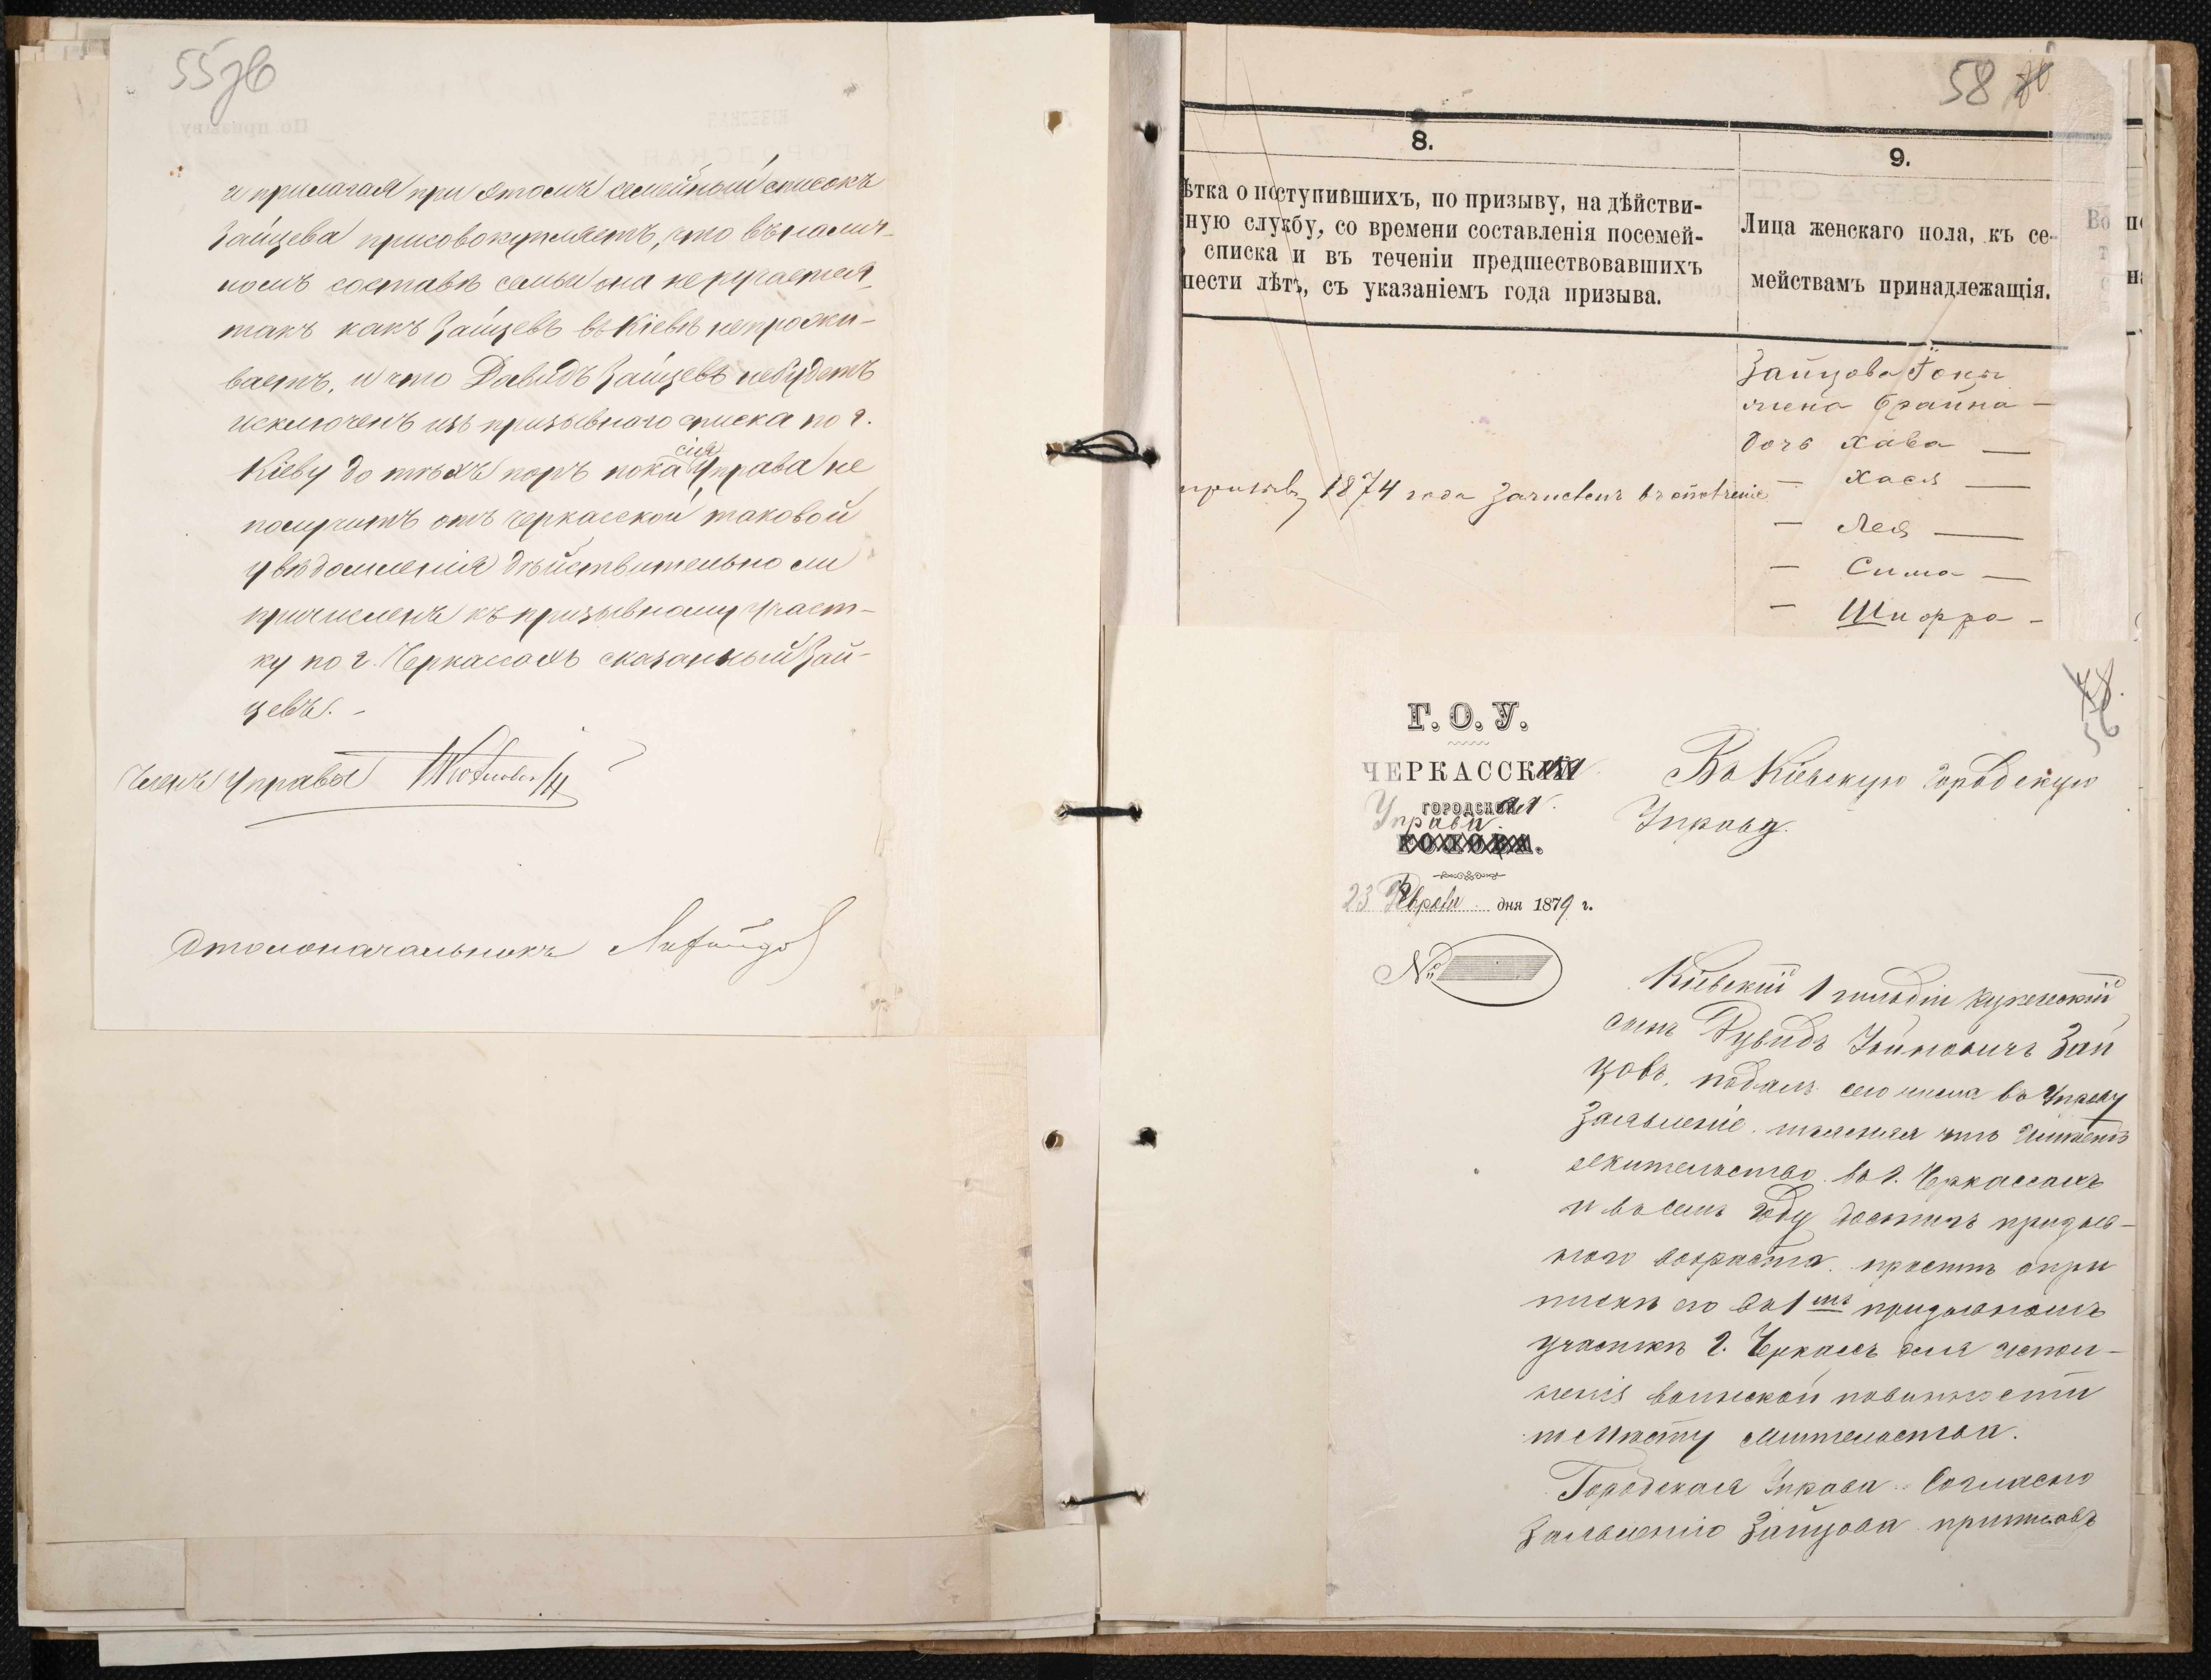 55 зв
и прилагая при этомъ семейный списокъ
Зайцева присовокупляетъ, что въ налич-
номъ составѣ семьи она не ручается
такъ какъ Зайцевъ въ Кіевѣ непрожи-
ваетъ, и что Давидъ Зайцевъ небудетъ
исключенъ изъ призывнаго списка по г.
Кіеву до тѣхъ поръ пока сія Управа не
получитъ отъ Черкасской таковой
увѣдомленія дѣйствительно ли
причисленъ къ призывному участ-
ку по г. Черкассахъ сказанный Зай-
цевъ. -
Членъ Управы
Столоначальникъ
58
8.
9.
ѣтка о поступившихъ, по призыву, на дѣйстви-
ную службу, со времени составленія посемей-
списка и въ теченіи предшествовавшихъ
шести лѣтъ, съ указаніемъ года призыва.
Лица женскаго пола, къ се-
мействамъ принадлежащія.
Зайцова Іоны
жена Брайна -
дочь Хава —
— Хася —
призывѣ 1874 года зачисленъ въ ополченіе
— Лея —
— Сима —
— Шифра -
56
Г. О. У.
ЧЕРКАССКАЯ
ГОРОДСКАЯ
Управа
ГОЛОВА.
23 Феврали дня 1879 г.
№
Въ Кіевскую Городскую
Управу.
Кіевскій 1 гильдіи купеческій
сынъ Дувидъ Іоиновичъ Зай
цовъ, подалъ сего числа въ Управу
Заявленіе изъясняя что имѣетъ
жительство въ г. Черкассахъ
и въ семъ году достигъ призыв-
наго возраста проситъ о при
пискѣ его въ 1мъ призывномъ
участкѣ г. Черкассъ для испол-
ненія воинской повинности
по мѣсту жительства.
Городская Управа Согласно
Заявленію Зайцова приписавъ